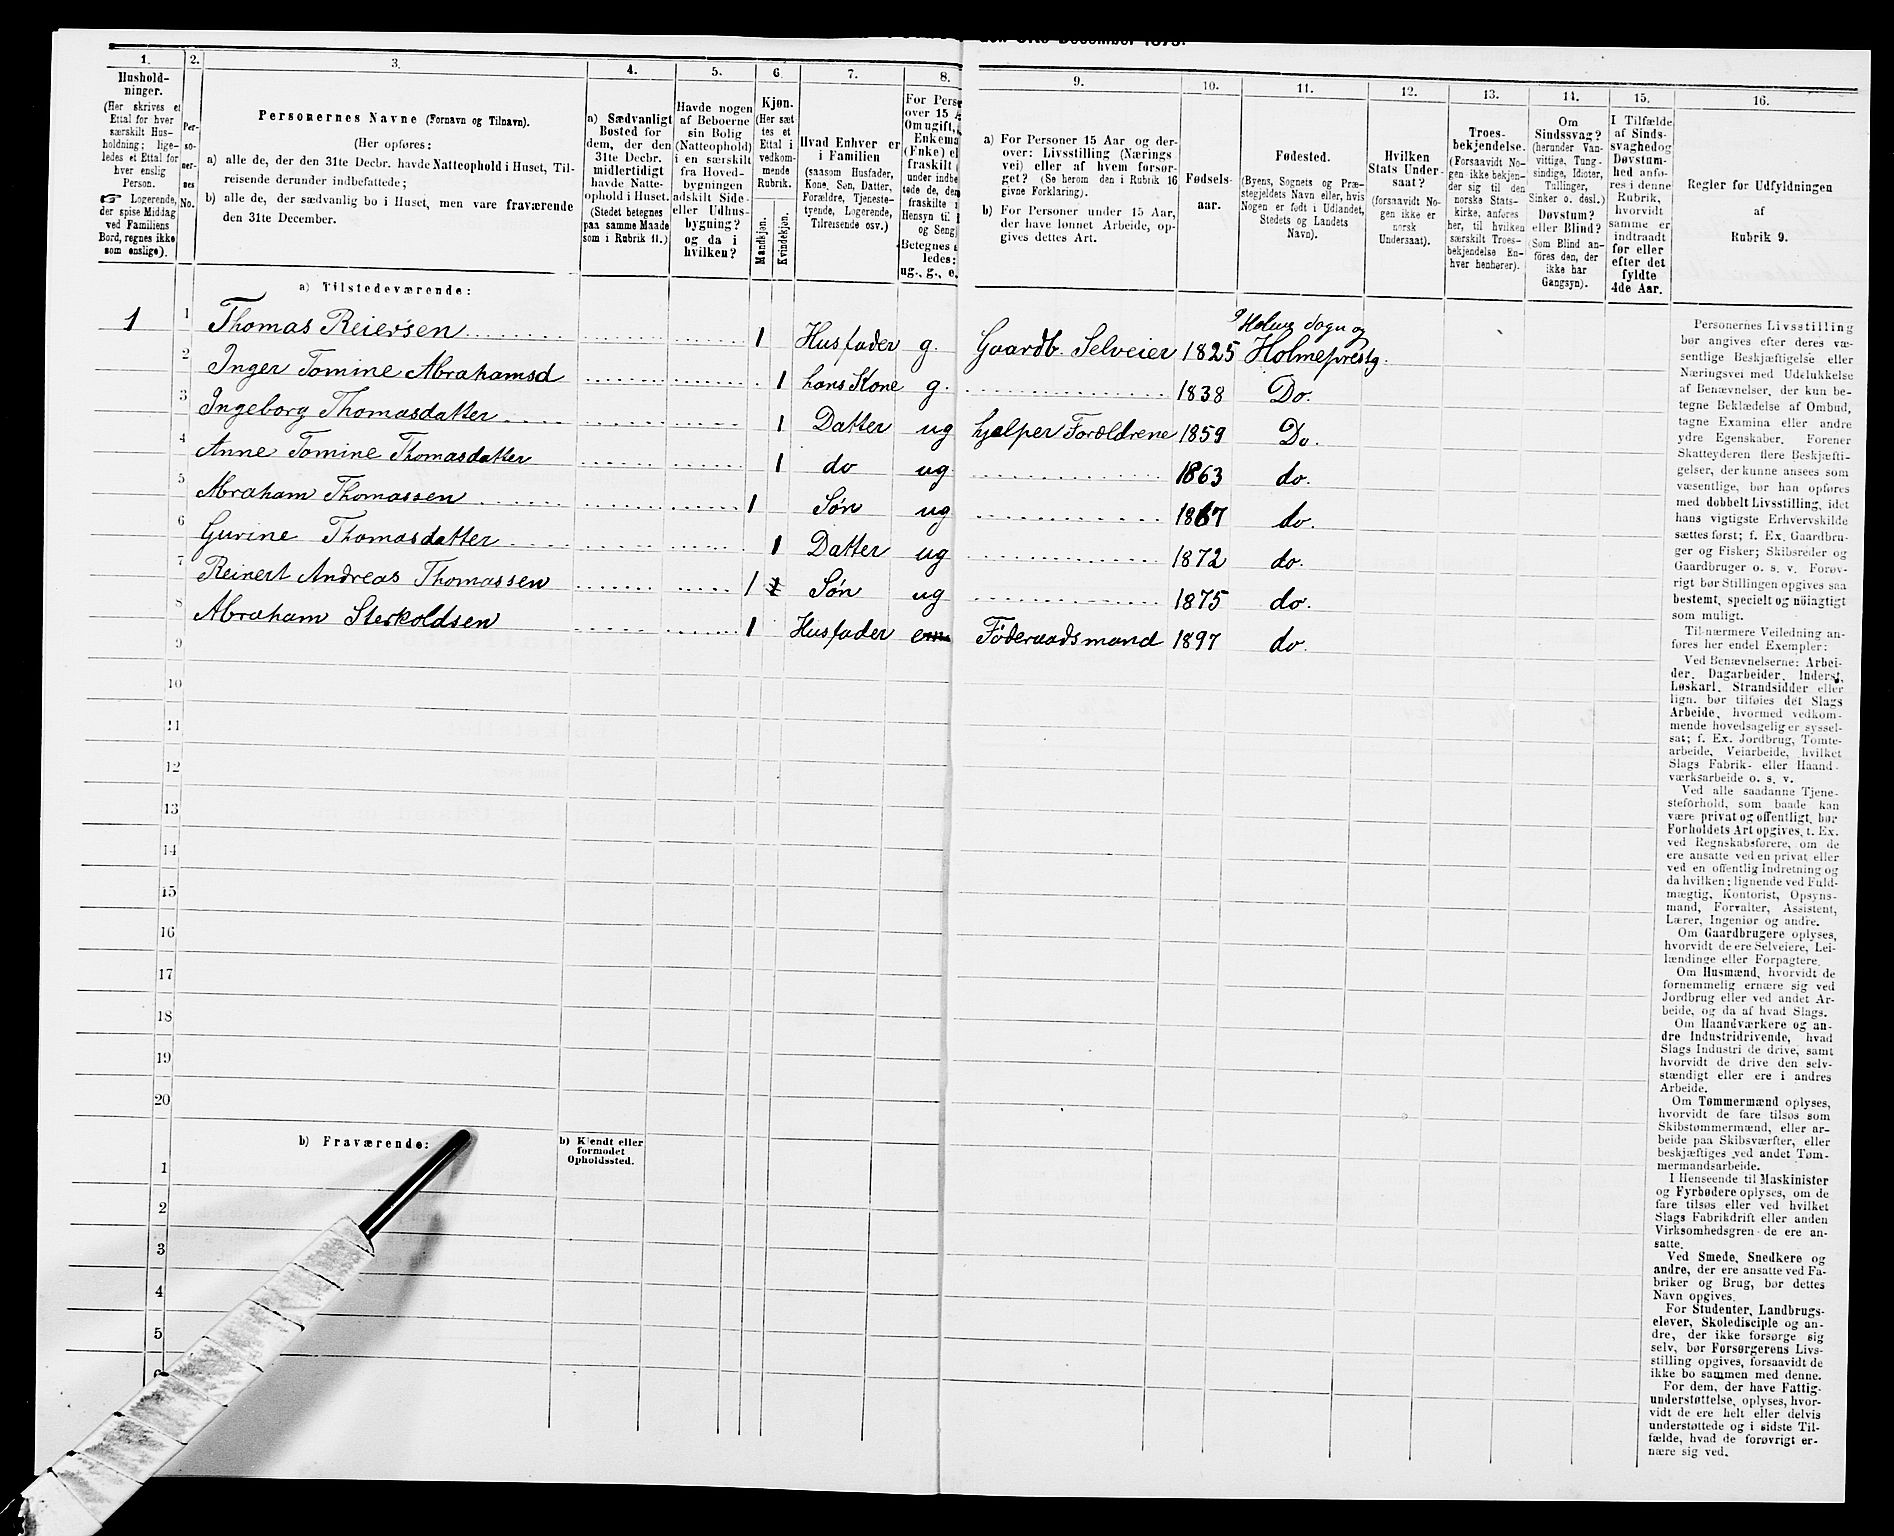 den 31te December 1875.
1. 2. 3. 4. 5. 6. 7. 8. 9. 10. 11. 12. 13. 14. 15. 16.
Hushold-
ninger.
(Her skrives et
Ettal for hver
særskilt Hus-
holdning; lige-
ledes et Ettal for
hver enslig
Person.
☞ Logerende,
der spise Middag
ved Familiens
Bord, regnes ikke
som enslige).
Per-
so-
ner-
nes
No.
Personernes Navne (Fornavn og Tilnavn).
(Her opføres:
a) alle de, der den 31te Decbr. havde Natteophold i Huset, Til-
reisende derunder indbefattede;
b) alle de, der sædvanlig bo i Huset, men vare fraværende
den 31te December.
a) Sædvanligt
Bosted for
dem, der den
31te Decbr.
midlertidigt
havde Natte-
ophold i Huset.
(Stedet betegnes
paa samme Maade
som i Rubrik 11.)
Havde nogen
af Beboerne
sin Bolig
(Natteophold)
i en særskilt
fra Hoved-
bygningen
adskilt Side-
eller Udhus-
bygning?
og da i
hvilken?
Kjøn.
(Her sæt-
tes et
Ettal i
vedkom-
mende
Rubrik.
Mandkjøn.
Kvindekjøn.
Hvad Enhver er
i Familien
(saasom Husfader,
Kone, Søn, Datter,
Forældre, Tjeneste-
tyende, Logerende,
Tilreisende osv.)
For Perso
over 15 A
Om ugift,
Enkema
(Enke) el
fraskilt
under indbe
tede de, den
fraskilte
Hensyn til
og Seng
Betegnes s
ledes:
ug., g., e.
a) For Personer 15 Aar og der-
over: Livsstilling (Nærings
vei) eller af hvem forsør-
get? (Se herom den i Rubrik 16
givne Forklaring).
b) For Personer under 15 Aar,
der have lønnet Arbeide, op-
gives dettes Art.
Fødsels-
aar.
Fødested.
(Byens, Sognets og Præ-
stegjeldets Navn eller, hvis
Nogen er født i Udlandet,
Stedets og Landets
Navn).
Hvilken
Stats Under-
saat?
(forsaavidt No-
gen ikke er
norsk
Undersaat).
Troes-
bekjendelse.
(Forsaavidt No-
gen ikke bekjen-
der sig til den
norske Stats-
kirke, anføres
her, til hvilken
særskilt Troes-
bekjendelse En-
hver henhører).
Om
Sindssvag?
(herunder Van-
vittige, Tung-
sindige, Idioter,
Tullinger,
Sinker o. desl.)
Døvstum?
eller Blind?
(Som Blind an-
føres den, der
ikke har
Gangsyn).
I Tilfælde
af Sinds-
svaghedog
Døvstum-
hed anfø-
res i denne
Rubrik,
hvorvidt
samme er
indtraadt
før eller
efter det
fyldte
4de Aar.
Regler for Udfyldningen
af
Rubrik 9.
a) Tilstedeværende:
Holme Sogn og
1 1 Thomas Reiersen 1 Husfader g. Gaardb. Selveier 1825 Holmeprestg.
2 Inger Tomine Abrahamsd 1 hans Kone g. 1838 Do.
3 Ingeborg Thomasdatter 1 Datter ug hjælper Forældrene 1859 Do.
4 Anne Tomine Thomasdatter 1 do ug 1863 do.
5 Abraham Thomassen 1 Søn ug 1867 do.
6 Gurine Thomasdatter 1 Datter ug 1872 do.
7 Reinert Andreas Thomassen 1 Søn ug 1875 do.
8 Abraham Sterkoldsen 1 Husfader em Föderaadsmand 1897 do.
9
10
11
12
13
14
15
16
17
18
19
20
b) Fraværende:
b) Kjendt eller
formodet
Opholdssted.
1
2
3
4
5
6
Personernes Livsstilling
bør angives efter deres væ-
sentlige Beskjæftigelse eller
Næringsvei med Udelukkelse
af Benævnelser, der kun be-
tegne Beklædelse af Ombud,
tagne Examina eller andre
ydre Egenskaber. Forener
Skatteyderen flere Beskjæfti-
gelser, der kunne ansees som
væsentlige, bør han opføres
med dobbelt Livsstilling, idet
hans vigtigste Erhvervskilde
sættes først; f. Ex. Gaardbru-
ger og Fisker; Skibsreder og
Gaardbruger o. s. v. Forøv-
rigt bør Stillingen opgives saa
bestemt, specielt og nöiagtigt
som muligt.
Til nærmere Veiledning an-
føres her endel Exempler:
Ved Benævnelserne: Arbei-
der, Dagarbeider, Inderst,
Løskarl, Strandsidder eller
lign. bør tilføies det Slags
Arbeide, hvormed vedkom-
mende hovedsagelig er syssel-
sat; f. Ex. Jordbrug, Tomte-
arbeide, Veiarbeide, hvilket
Slags Fabrik- eller Haand-
værksarbeide o. s. v.
Ved alle saadanne Tjene-
steforhold, som baade kan
være privat og offentligt, bør
Forholdets Art opgives, t. Ex.
ved Regnskabsførere, om de
ere ansatte ved en privat eller
ved en offentlig Indretning og
da hvilken; lignende ved Fuld-
mægtig, Kontorist, Opsyns-
mand, Forvalter, Assistent,
Lærer, Ingeniør og andre.
Om Gaardbrugere oplyses,
hvorvidt de ere Selveiere, Lei-
lændinge eller Forpagtere.
Om Husmænd, hvorvidt de
fornemmelig ernære sig ved
Jordbrug eller ved andet Ar-
beide, og da af hvad Slags.
Om Haandværkere og an-
dre Industridrivende, hvad
Slags Industri de drive, samt
hvorvidt de drive den selv-
stændigt eller ere i andres
Arbeide.
Om Tømmermænd oplyses,
hvorvidt de fare tilsøs som
Skibstømmermænd, eller ar-
beide paa Skibsværfter, eller
beskjæftiges ved andet Tøm-
mermandsarbeide.
I Henseende til Maskinister
og Fyrbødere oplyses, om de
fare tilsøs eller ved hvilket
Slags Fabrikdrift eller anden
Virksomhedsgren de ere an-
satte.
Ved Smede, Snedkere og
andre, der ere ansatte ved Fa-
briker og Brug, bør dettes
Navn opgives.
For Studenter, Landbrugs-
elever, Skoledisciple og an-
dre, der ikke forsørge sig
selv, bør Forsørgerens Livs-
stilling opgives, forsaavidt de
ikke bo sammen med denne.
For dem, der have Fattig-
understøttelse, oplyses, hvor-
vidt de ere helt eller delvis
understøttede og i sidste Til-
fælde, hvad de forøvrigt er-
nære sig ved.